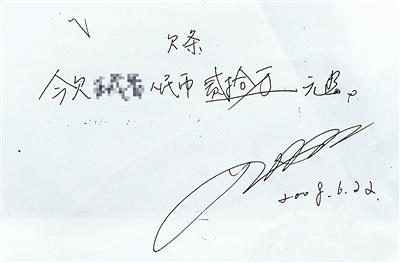 欠条
今欠人民币贰拾万元整。
2008.6.22.